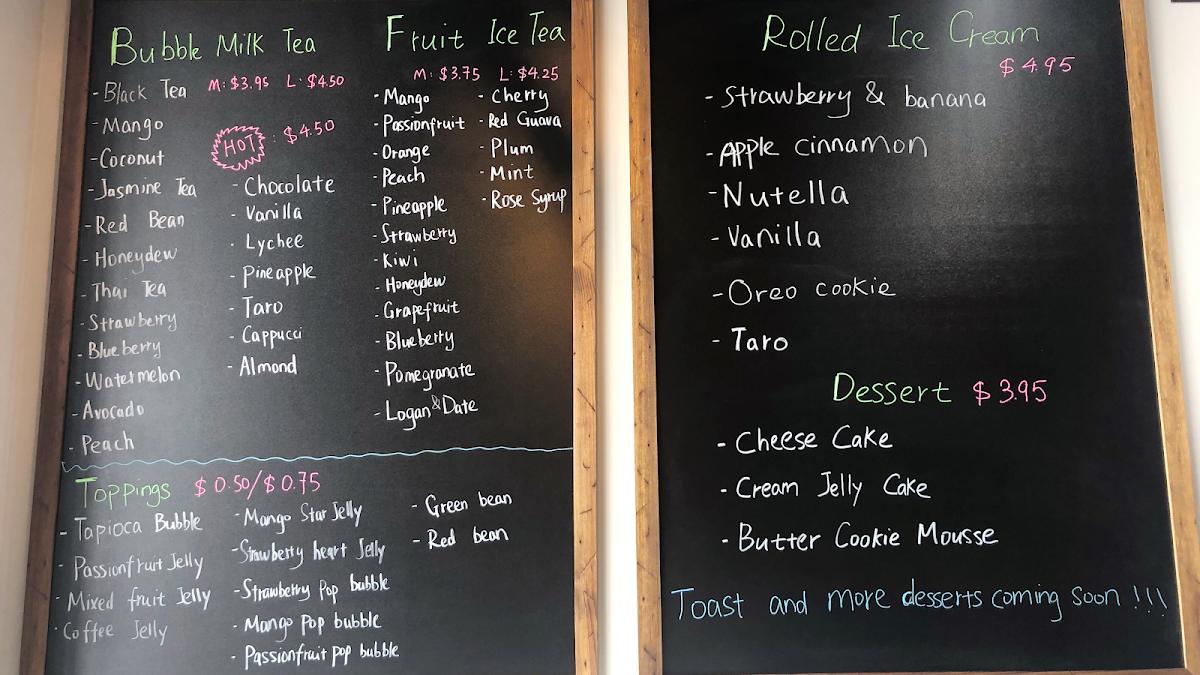 Bubble Milk Tea
M: $3.95 L: $4.50
- Black Tea
- Mango
- Coconut
- Jasmine Tea
- Red Bean
- Honeydew
- Thai Tea
- Strawberry
- Blueberry
- Watermelon
- Avocado
- Peach
HOT : $4.50
- Chocolate
- Vanilla
- Lychee
- Pineapple
- Taro
- Cappucci
- Almond
Fruit Ice Tea
M: $3.75 L: $4.25
- Mango
- Passionfruit
- Orange
- Peach
- Pineapple
- Strawberry
- Kiwi
- Honeydew
- Grapefruit
- Blueberry
- Pomegranate
- Logan & Date
- Cherry
- Red Guava
- Plum
- Mint
- Rose Syrup
Toppings $0.50/$0.75
- Tapioca Bubble
- Passionfruit Jelly
- Mixed fruit Jelly
- Coffee Jelly
- Mango Star Jelly
- Strawberry heart Jelly
- Strawberry Pop bubble
- Mango Pop bubble
- Passionfruit pop bubble
- Green bean
- Red bean
Rolled Ice Cream
$4.95
- Strawberry & banana
- Apple cinnamon
- Nutella
- Vanilla
- Oreo cookie
- Taro
Dessert $3.95
- Cheese Cake
- Cream Jelly Cake
- Butter Cookie Mousse
Toast and more desserts coming soon !!!